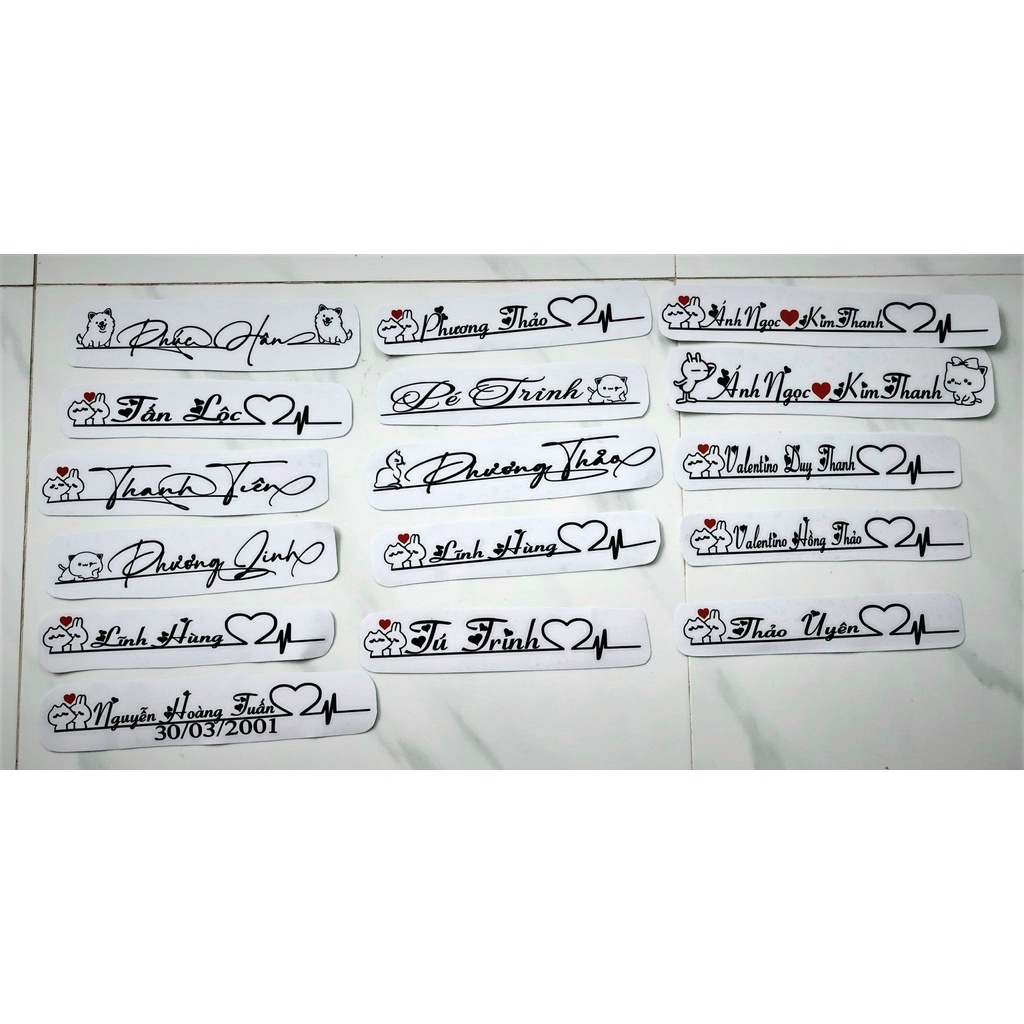 Phúc Hân
Tấn Lộc
Thanh Tiên
Phương Linh
Lĩnh Hùng
Nguyễn Hoàng Tuấn
30/03/2001
Phương Thảo
Bé Trinh
Phương Thảo
Lĩnh Hùng
Tú Trinh
Ánh Ngọc Kim Thanh
Ánh Ngọc Kim Thanh
Valentino Duy Thanh
Valentino Hồng Thảo
Thảo Uyên